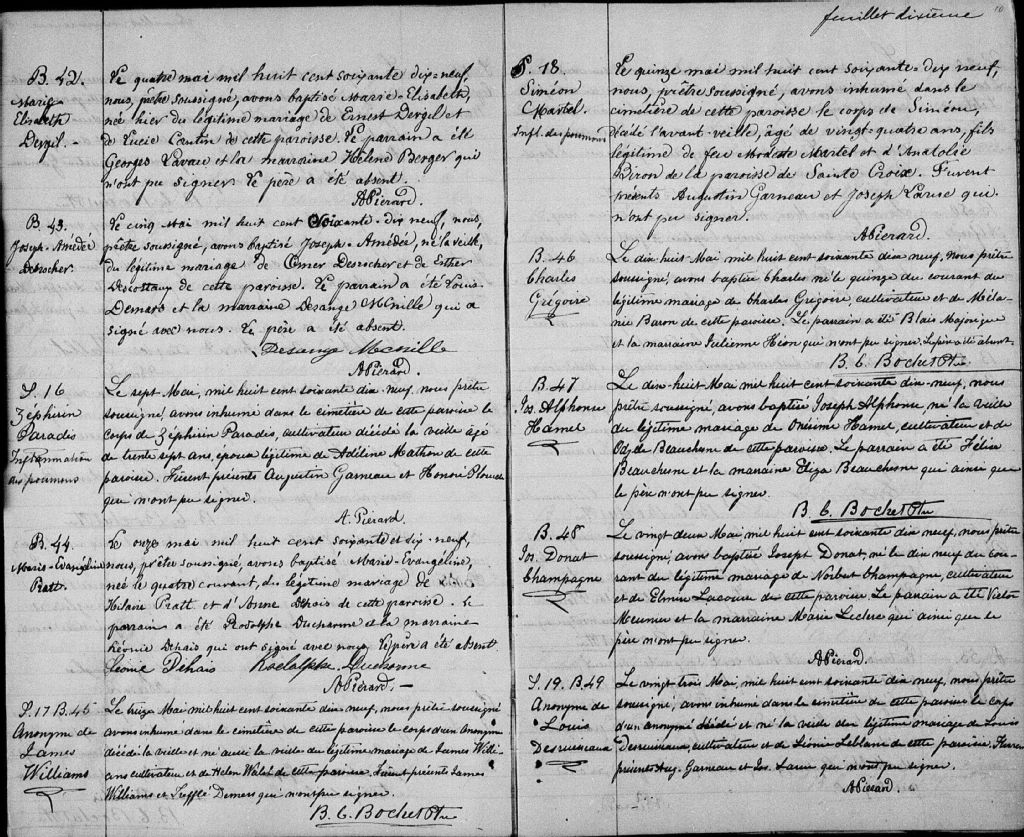 B. 42.
Marie-
Elizabeth
Dergil. -
Le quatre mai mil huit cent soixante-dix-neuf,
nous, prêtre soussigné, avons baptisé Marie-Elisabeth,
née hier du légitime mariage de Ernest Dergil et
de Lucie Cantin de cette paroisse. Le parrain a été
Georges Lavau et la marraine Hélène Berger qui
n'ont pu signer. Le père a été absent.
A Piérard.
B. 43.
Joseph-Amédée
Desrocher.
Le cinq Mai mil huit cent Soixante-dix neuf, nous,
prêtre soussigné, avons baptisé Joseph-Amédée, né la veille,
du légitime mariage de Omer Desrocher et de Esther
de cette paroisse. Le parrain a été Louis
Demars et la marraine Désange McNille qui a
signé avec nous. Le père a été absent.
Desange McNille
A Piérard.
S. 16
Zéphirin
Paradis
Inflammation
des poumons
Le sept Mai, mil huit cent soixante dix-neuf, nous prêtre
soussigné, avons inhumé dans le cimetière de cette paroisse le
corps de Zéphirin Paradis, cultivateur décédé la veille âgé
de trente sept ans, époux légitime de Adéline Mathon de cette
paroisse. Fûrent présents Augustin Garneau et Honoré Plourde
qui n'ont pu signer.
A. Piérard
B. 44.
Marie-Evangéline
Pratt.
Le onze mai mil huit cent soixante et dix-neuf,
nous, prêtre soussigné, avons baptisé Marie-Evangéline,
née le quatre courant, du légitime mariage de
Hilaire Pratt et d'Anne Dehais de cette paroisse. Le
parrain a été Rodolphe Ducharme et la marraine
Léonie Dehais qui ont signé avec nous, le père a été absent.
Léonie Dehais Rodolphe Ducharme
A Piérard. -
S. 17 B. 45
Anonyme de
James
Williams
Le treize Mai mil huit cent soixante dix neuf, nous prêtre soussigné
avons inhumé dans le cimetière de cette paroisse le corps d'un Anonyme
décédé la veille et né aussi la veille du légitime mariage de James Willi-
ans cultivateur et de Helen Walsh de cette paroisse. Fûrent présents James
Williams et Trefflé Demers qui n'ont pu signer.
B. C. Bochet Ptre
feuillet dixième
10
S. 18.
Siméon
Martel.
Infl. des poumons
Le quinze mai mil huit cent soixante-dix neuf,
nous, prêtre soussigné, avons inhumé dans le
cimetière de cette paroisse le corps de Siméon,
décédé l'avant-veille, âgé de vingt-quatre ans, fils
légitime de feu Modeste Martel et d'Anatolie
Biron de la paroisse de Sainte Croix. Furent
présents Augustin Garneau et Joseph Larue qui
n'ont pu signer.
A Piérard.
B. 46
Charles
Grégoire
Le dix huit Mai mil huit cent soixante dix neuf, nous prêtre
soussigné, avons baptisé Charles né le quinze du courant du
légitime mariage de Charles Grégoire, cultivateur et de Méla-
nie Baron de cette paroisse. Le parrain a été Blais Majorique
et la marraine Julienne Héon qui n'ont pu signer. Le père a été absent
B. C. Bochet Ptre
B. 47
Jos. Alphonse
Hamel
Le dix-huit Mai mil huit cent soixante dix-neuf, nous
prêtre soussigné, avons baptisé Joseph Alphonse, né la veille
du légitime mariage de Onésime Hamel, cultivateur et de
Beauchesne de cette paroisse. Le parrain a été Félix
Beauchesne et la marraine Eliza Beauchesne qui ainsi que
le père n'ont pu signer.
B. C. Bochet Ptre
B. 48
Jos. Donat
Champagne
Le vingt deux Mai, mil huit cent soixante dix neuf, nous prêtre
soussigné, avons baptisé Joseph Donat, né le dix neuf du cou-
rant du légitime mariage de Norbert Champagne, cultivateur
et de Elmire Lacourse de cette paroisse Le parrain a été Victor
Meunier et la marraine Marie Leclerc qui ainsi que le
père n'ont pu signer.
A Piérard.
S. 19. B. 49
Anonyme de
Louis
Desruisseaux
Le vingt trois Mai, mil huit cent soixante dix neuf, nous prêtre
soussigné, avons inhumé dans le cimetière de cette paroisse le corps
d'un anonyme décédé et né la veille du légitime mariage de Louis
Desruisseaux, cultivateur et de Léonie Leblanc de cette paroisse. Furent
présents Aug. Garneau et Jos. Larue qui n'ont pu signer.
A Piérard.